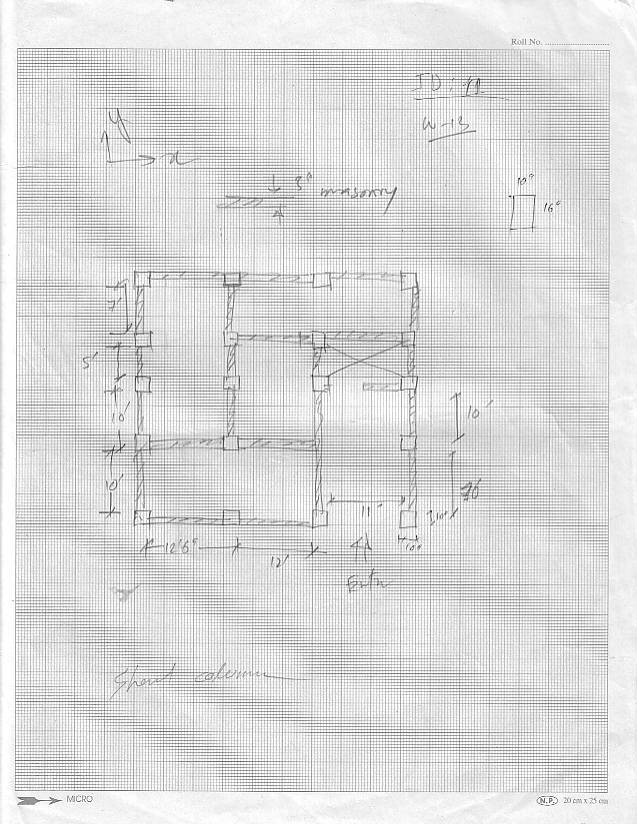 Roll No.
ID: 11
W-13
y
x
5" masonry
10"
16"
7'
5'
10'
10'
10'
11'
12'6"
12'
10"
Entr
Short column
MICRO
N.P. 20 cm x 25 cm